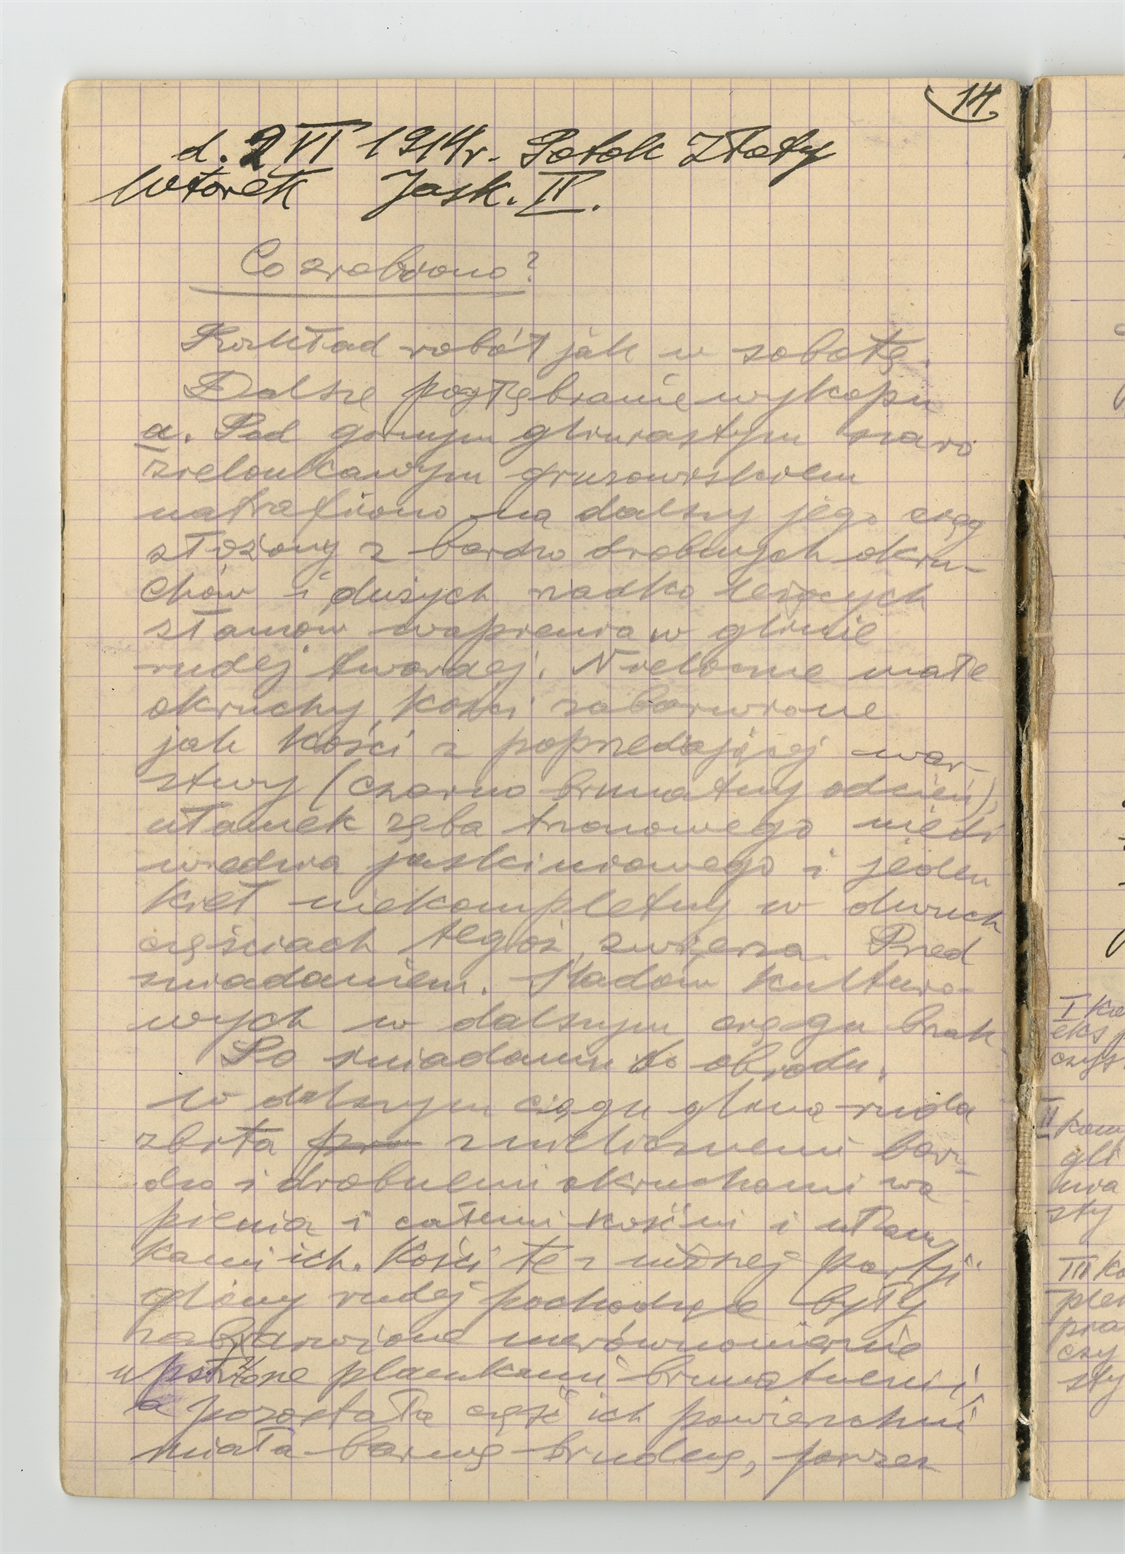 14.
d. 2 VI 1914 r. Potok Złoty
Wtorek Jask. II.
Co zrobiono?
Rozkład robót jak w sobotę.
Dalsze pogłębianie wykopu
a. Pod górnym gliniastym szaro
zielonkawym gruzowiskiem
natrafiono na dalszy jego ciąg
złożony z bardzo drobnych okru-
chów i dużych rzadko leżących
złamów wapienia w glinie
rudej twardej. Nieliczne małe
okruchy kości zabarwione
jak kości z poprzedającej war-
stwy (czarno brunatny odcień),
ułamek zęba trzonowego niedź
wiedzia jaskiniowego i jeden
kieł niekompletny w dwuch
częściach tegoż zwierza. Przed
śniadaniem. Śladów kulturo-
wych w dalszym ciągu brak
Po śniadaniu do obiadu.
w dalszym ciągu glina ruda
zbita z nielicznemi bar-
dzo i drobnemi okruchami wa
pienia i całemi kośćmi i ułam
kami ich. Kości te z niższej partji
gliny rudej pochodzące były
zabarwione nierównomiernie
upstrzone plamkami brunatnemi i
a pozostała część ich powierzchni
miała barwę brudną, przez
I
II
gli
sty
III
sty